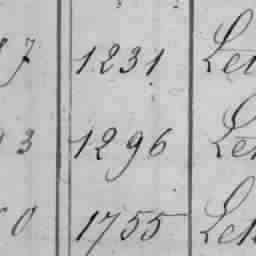 7 1231 Let
3 1296 Let
0 1755 Let